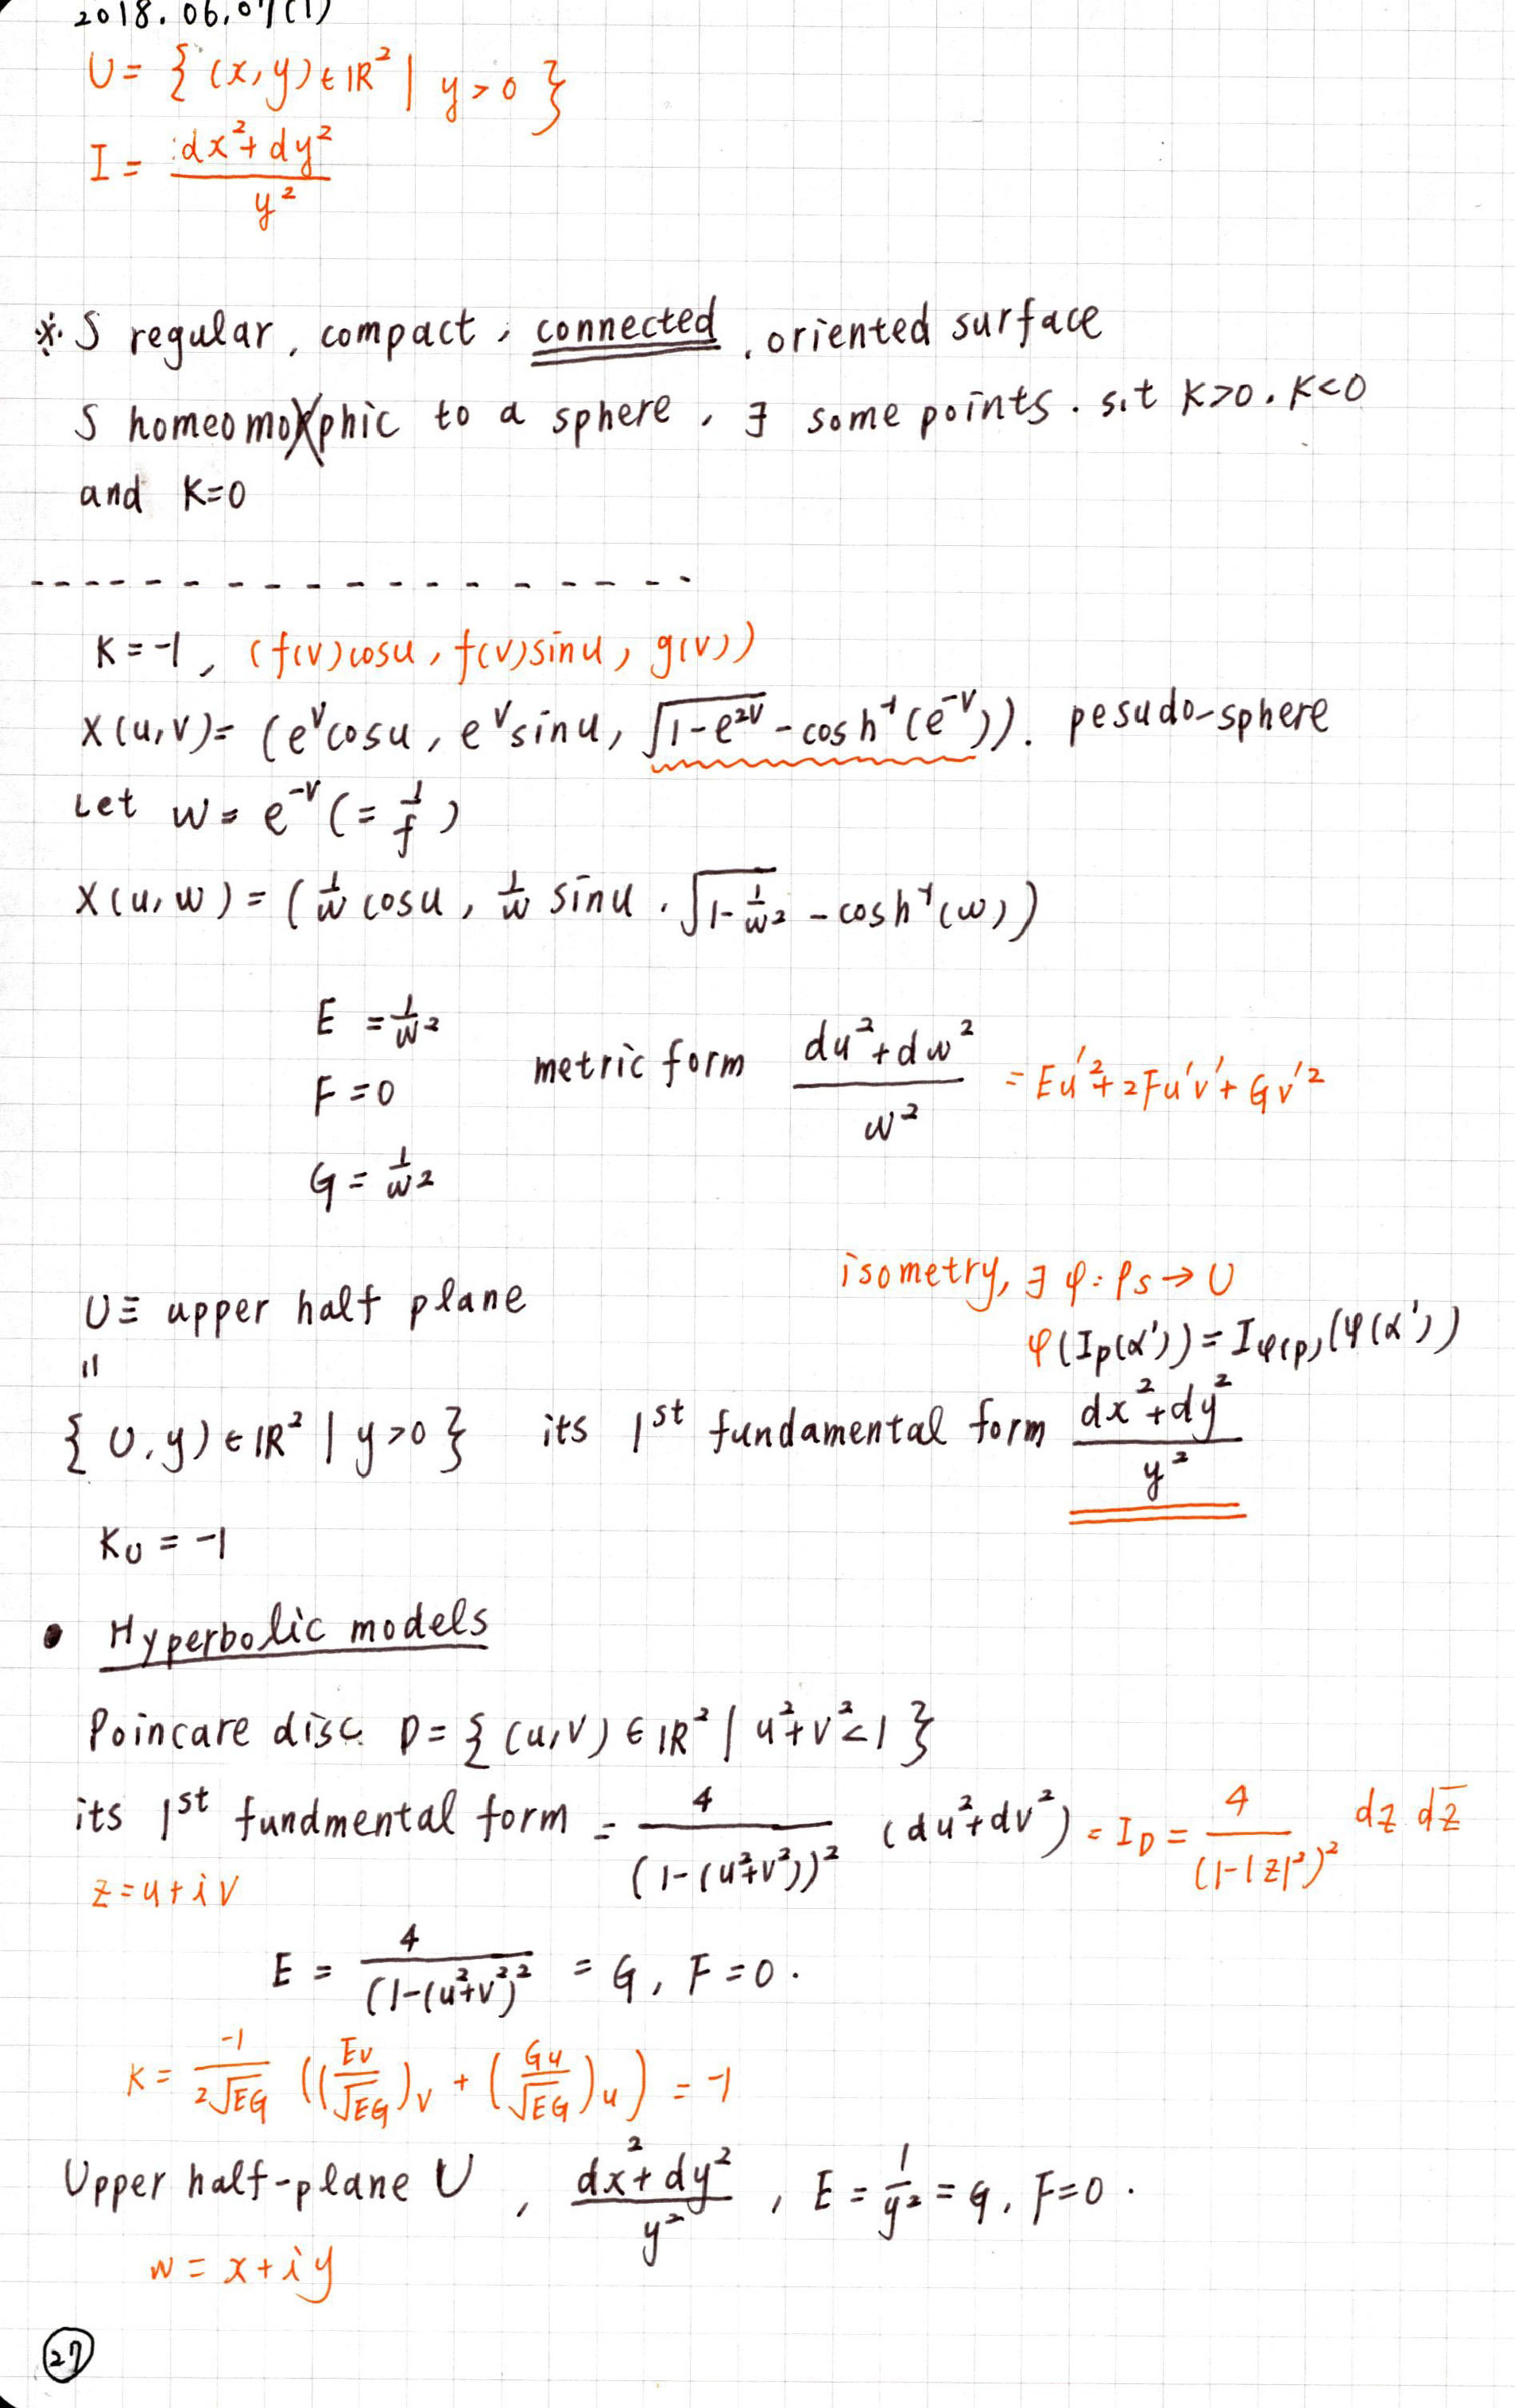 2018.06.07(1)
U = { (x,y) ∈ ℝ² | y>0 }
I = (dx²+dy²)/y²
※ S regular, compact, connected, oriented surface
S homeomorphic to a sphere, ∃ some points. s.t K>0. K<0
and K=0
K=-1, (f(v)cosu, f(v)sinu, g(v))
X(u,v)= (e^v cosu, e^v sinu, √(1-e^{2v}) - cosh⁻¹(e^{-v})). pesudo-sphere
Let w = e^{-v} (= 1/f)
X(u,w) = (1/w cosu, 1/w sinu, √(1-1/w²) - cosh⁻¹(w))
E = 1/w²
F = 0
metric form (du²+dw²)/w² = Eu'²+2Fu'v'+Gv'²
G = 1/w²
isometry, ∃ φ: Ps → U
U ≡ upper half plane
φ(I_p(α')) = I_{φ(p)}(φ(α'))
=
{ U,y) ∈ ℝ² | y>0 } its 1st fundamental form (dx²+dy²)/y²
K_U = -1
• Hyperbolic models
Poincare disc D = { (u,v) ∈ ℝ² | u²+v²<1 }
its 1st fundmental form = 4/(1-(u²+v²))² (du²+dv²) = I_D = 4/(1-|z|²)² dz dz̄
z=u+iv
E = 4/(1-(u²+v²)² = G, F=0.
K = -1/(2√EG) ((E_v/√EG)_v + (G_u/√EG)_u) = -1
Upper half-plane U, (dx²+dy²)/y², E = 1/y² = G, F=0.
w = x+iy
27